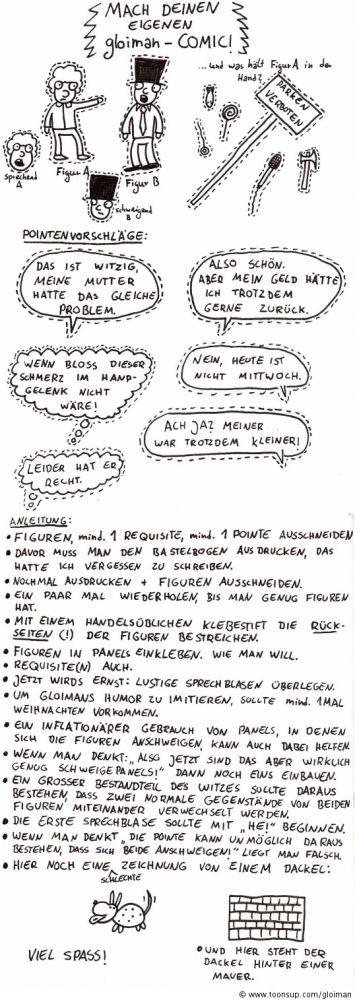 MACH DEINEN
EIGENEN
gloiman-COMIC!
...und was hält Figur A in der
Hand?
PARKEN
VERBOTEN
sprechend
A
Figur A
Figur B
schweigend
B
POINTENVORSCHLÄGE:
DAS IST WITZIG,
MEINE MUTTER
HATTE DAS GLEICHE
PROBLEM.
ALSO SCHÖN.
ABER MEIN GELD HÄTTE
ICH TROTZDEM
GERNE ZURÜCK.
WENN BLOSS DIESER
SCHMERZ IM HAND-
GELENK NICHT
WÄRE!
NEIN, HEUTE IST
NICHT MITTWOCH.
ACH JA? MEINER
WAR TROTZDEM KLEINER!
LEIDER HAT ER
RECHT.
ANLEITUNG:
• FIGUREN, mind. 1 REQUISITE, mind. 1 POINTE AUSSCHNEIDEN
• DAVOR MUSS MAN DEN BASTELBOGEN AUSDRUCKEN, DAS
HATTE ICH VERGESSEN ZU SCHREIBEN.
• NOCHMAL AUSDRUCKEN + FIGUREN AUSSCHNEIDEN.
• EIN PAAR MAL WIEDERHOLEN, BIS MAN GENUG FIGUREN
HAT.
• MIT EINEM HANDELSÜBLICHEN KLEBESTIFT DIE RÜCK-
SEITEN (!) DER FIGUREN BESTREICHEN.
• FIGUREN IN PANELS EINKLEBEN. WIE MAN WILL.
• REQUISITE(N) AUCH.
• JETZT WIRDS ERNST: LUSTIGE SPRECHBLASEN ÜBERLEGEN.
• UM GLOIMANS HUMOR ZU IMITIEREN, SOLLTE mind. 1 MAL
WEIHNACHTEN VORKOMMEN.
• EIN INFLATIONÄRER GEBRAUCH VON PANELS, IN DENEN
SICH DIE FIGUREN ANSCHWEIGEN, KANN AUCH DABEI HELFEN.
• WENN MAN DENKT: „ALSO JETZT SIND DAS ABER WIRKLICH
GENUG SCHWEIGEPANELS!" DANN NOCH EINS EINBAUEN.
• EIN GROSSER BESTANDTEIL DES WITZES SOLLTE DARAUS
BESTEHEN, DASS ZWEI NORMALE GEGENSTÄNDE VON BEIDEN
FIGUREN MITEINANDER VERWECHSELT WERDEN.
• DIE ERSTE SPRECHBLASE SOLLTE MIT „HE!" BEGINNEN.
• WENN MAN DENKT „DIE POINTE KANN UNMÖGLICH DARAUS
BESTEHEN, DASS SICH BEIDE ANSCHWEIGEN!" LIEGT MAN FALSCH.
• HIER NOCH EINE ZEICHNUNG VON EINEM DACKEL:
SCHLECHTE
VIEL SPASS!
• UND HIER STEHT DER
DACKEL HINTER EINER
MAUER.
© www.toonsup.com/gloiman